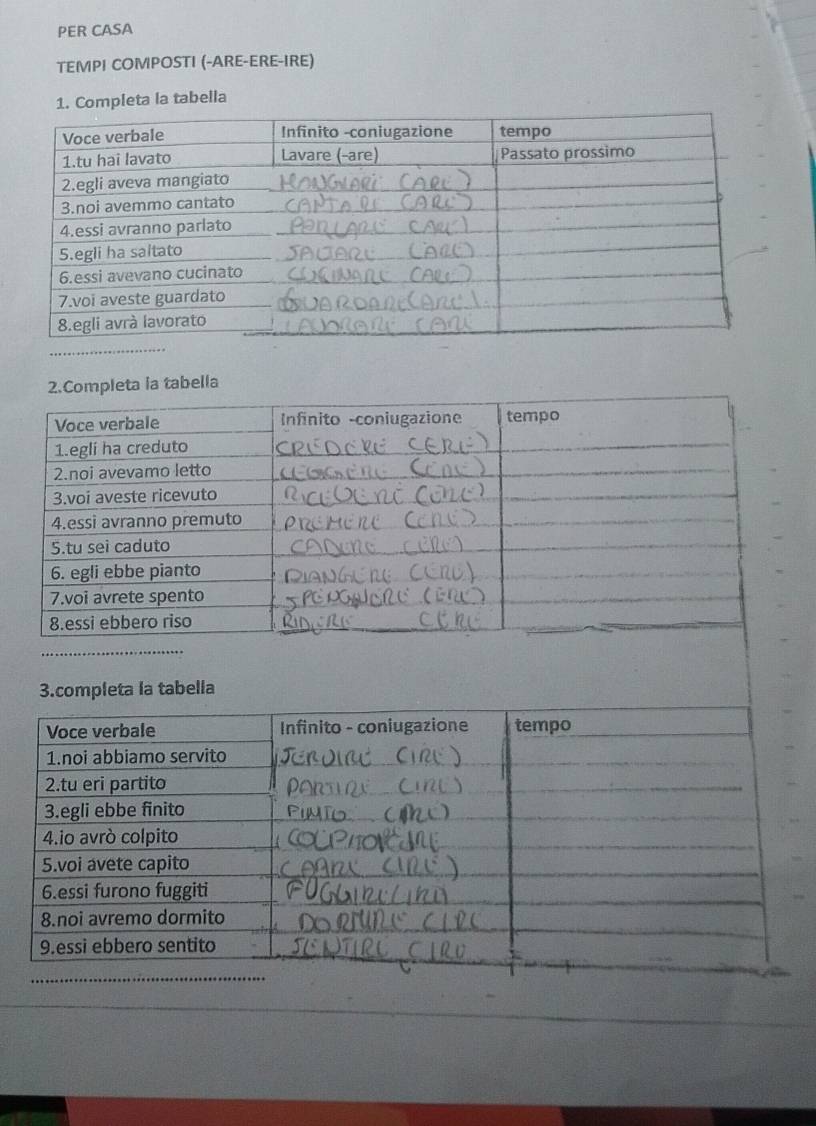 PER CASA
TEMPI COMPOSTI (-ARE-ERE-IRE)
1. Completa la tabella
Voce verbale Infinito -coniugazione tempo
1.tu hai lavato Lavare (-are) Passato prossimo
2.egli aveva mangiato MANGIARE (ARE)
3.noi avemmo cantato CANTARE (ARE)
4.essi avranno parlato PARLARE (ARE)
5.egli ha saltato SALTARE (ARE)
6.essi avevano cucinato CUCINARE (ARE)
7.voi aveste guardato GUARDARE (ARE)
8.egli avrà lavorato LAVORARE (ARE
........................
2.Completa la tabella
Voce verbale Infinito -coniugazione tempo
1.egli ha creduto CREDERE (ERE)
2.noi avevamo letto LEGGERE (ERE)
3.voi aveste ricevuto RICEVERE (ERE)
4.essi avranno premuto PREMERE (ERE)
5.tu sei caduto CADERE (ERE)
6. egli ebbe pianto PIANGERE (ERE)
7.voi avrete spento (ERE)
8.essi ebbero riso RIDERE (ERE
.............................
3.completa la tabella
Voce verbale Infinito - coniugazione tempo
1.noi abbiamo servito SERVIRE (IRE)
2.tu eri partito PARTIRE (IRE)
3.egli ebbe finito (IRE)
4.io avrò colpito
5.voi avete capito (IRE)
6.essi furono fuggiti FUGGIRE (IRE)
8.noi avremo dormito DORMIRE (IRE
9.essi ebbero sentito SENTIRE (IRE
................................................